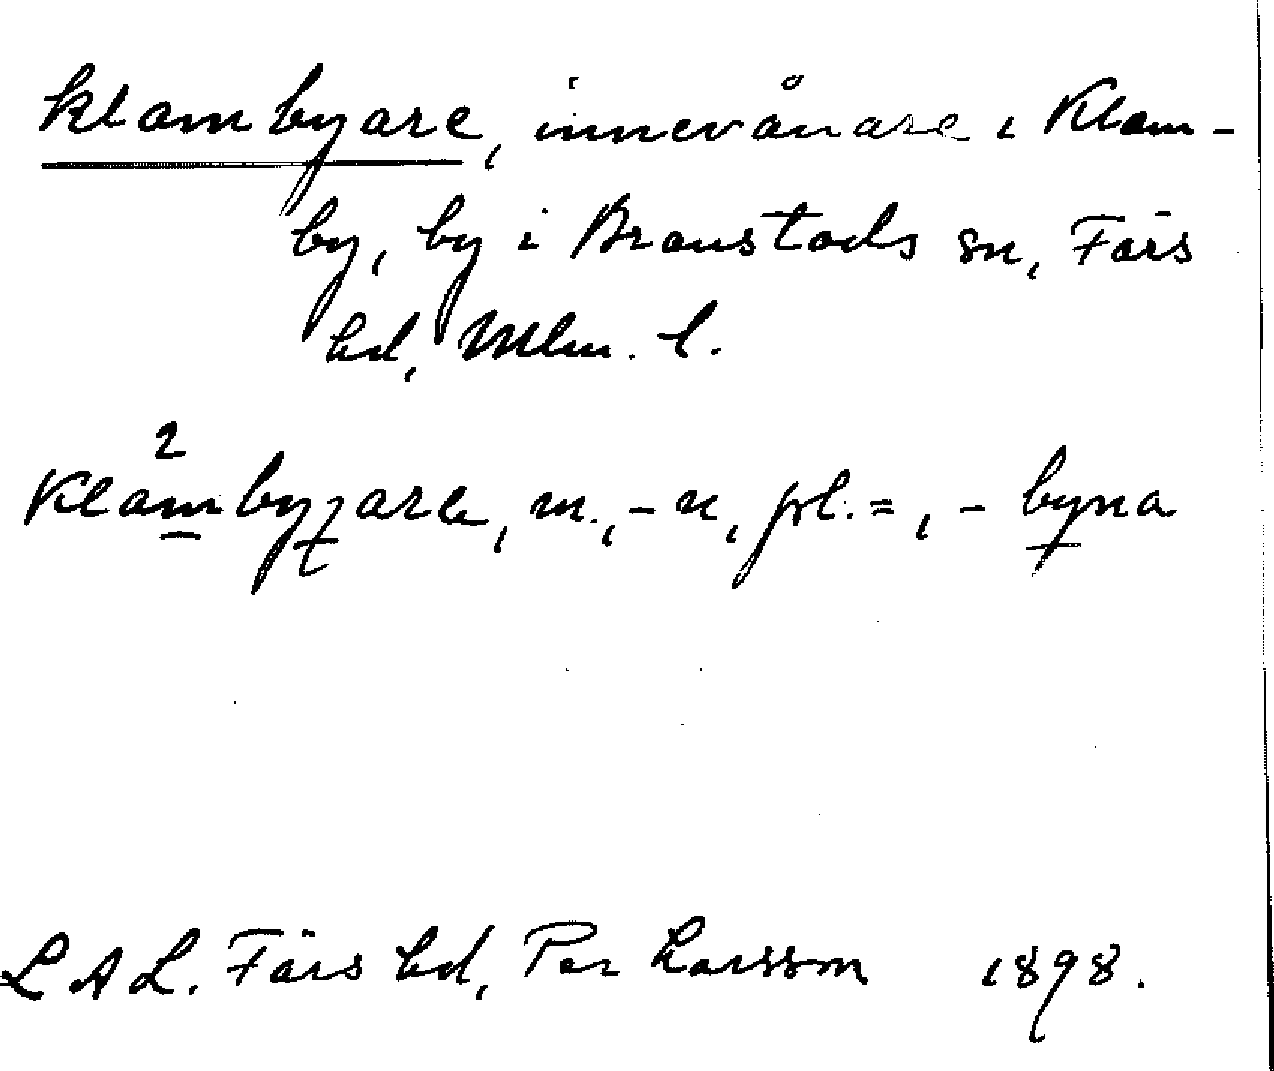 klambyare, innevånare i Klam-
by, by i Branstads sn, Färs
hd, Mlm. l.
2
klambyʒare, m., -n, pl. =, - byna
LAL. Färs hd, Per Larsson 1898.